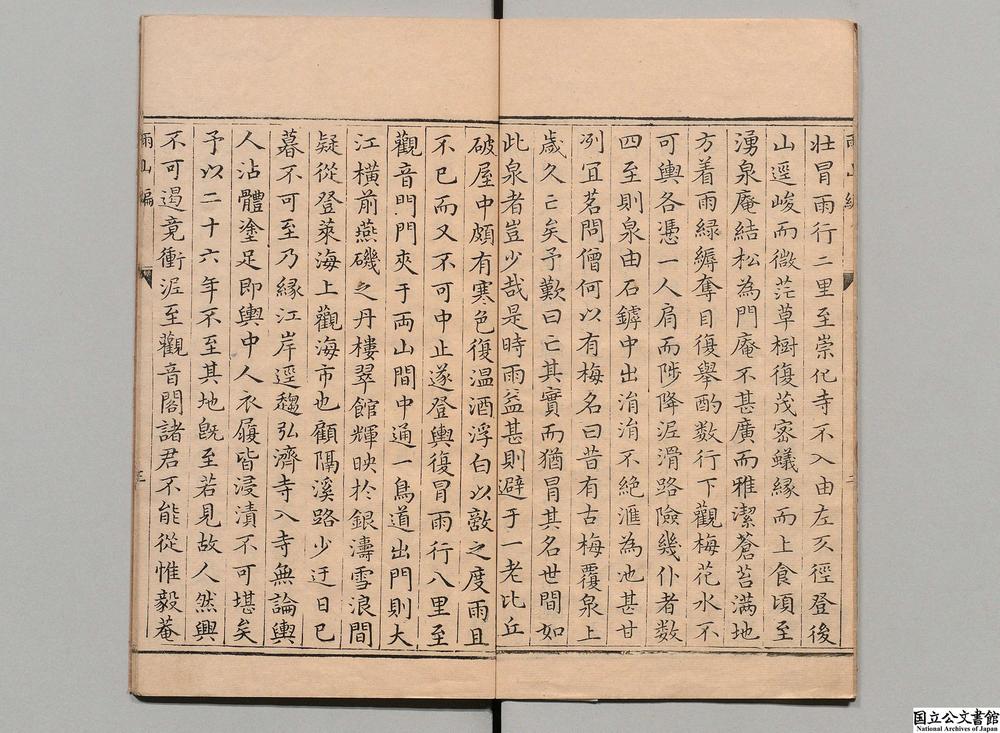 壯冒雨行二里至崇化寺不入由左叉徑登後
山逕峻而微茫草樹復茂密蟻緣而上食頃至
湧泉庵結松為門庵不甚廣而雅潔蒼苔滿地
方着雨綠縟奪目復舉酌数行下觀梅花水不
可輿各憑一人肩而陟降泥滑路險幾仆者数
四至則泉由石罅中出涓涓不絕滙為池甚甘
冽冝茗問僧何以有梅名曰昔有古梅覆泉上
歲久亡矣予歎曰亡其實而猶冒其名世間如
此泉者豈少哉是時雨益甚則避于一老比丘
破屋中頗有寒色復温酒浮白以敵之度雨且
不已而又不可中止遂登輿復冒雨行八里至
觀音門門夾于両山間中通一鳥道出門則大
江橫前燕磯之丹樓翠館輝映於銀濤雪浪間
疑從登萊海上觀海市也顧隔溪路少迂日已
暮不可至乃緣江岸逕趨弘濟寺入寺無論輿
人沾體塗足即輿中人衣履皆浸漬不可堪矣
予以二十六年不至其地旣至若見故人然興
不可遏竟衝泥至觀音閣諸君不能從惟毅菴
雨山編
三
国立公文書館
National Archives of Japan